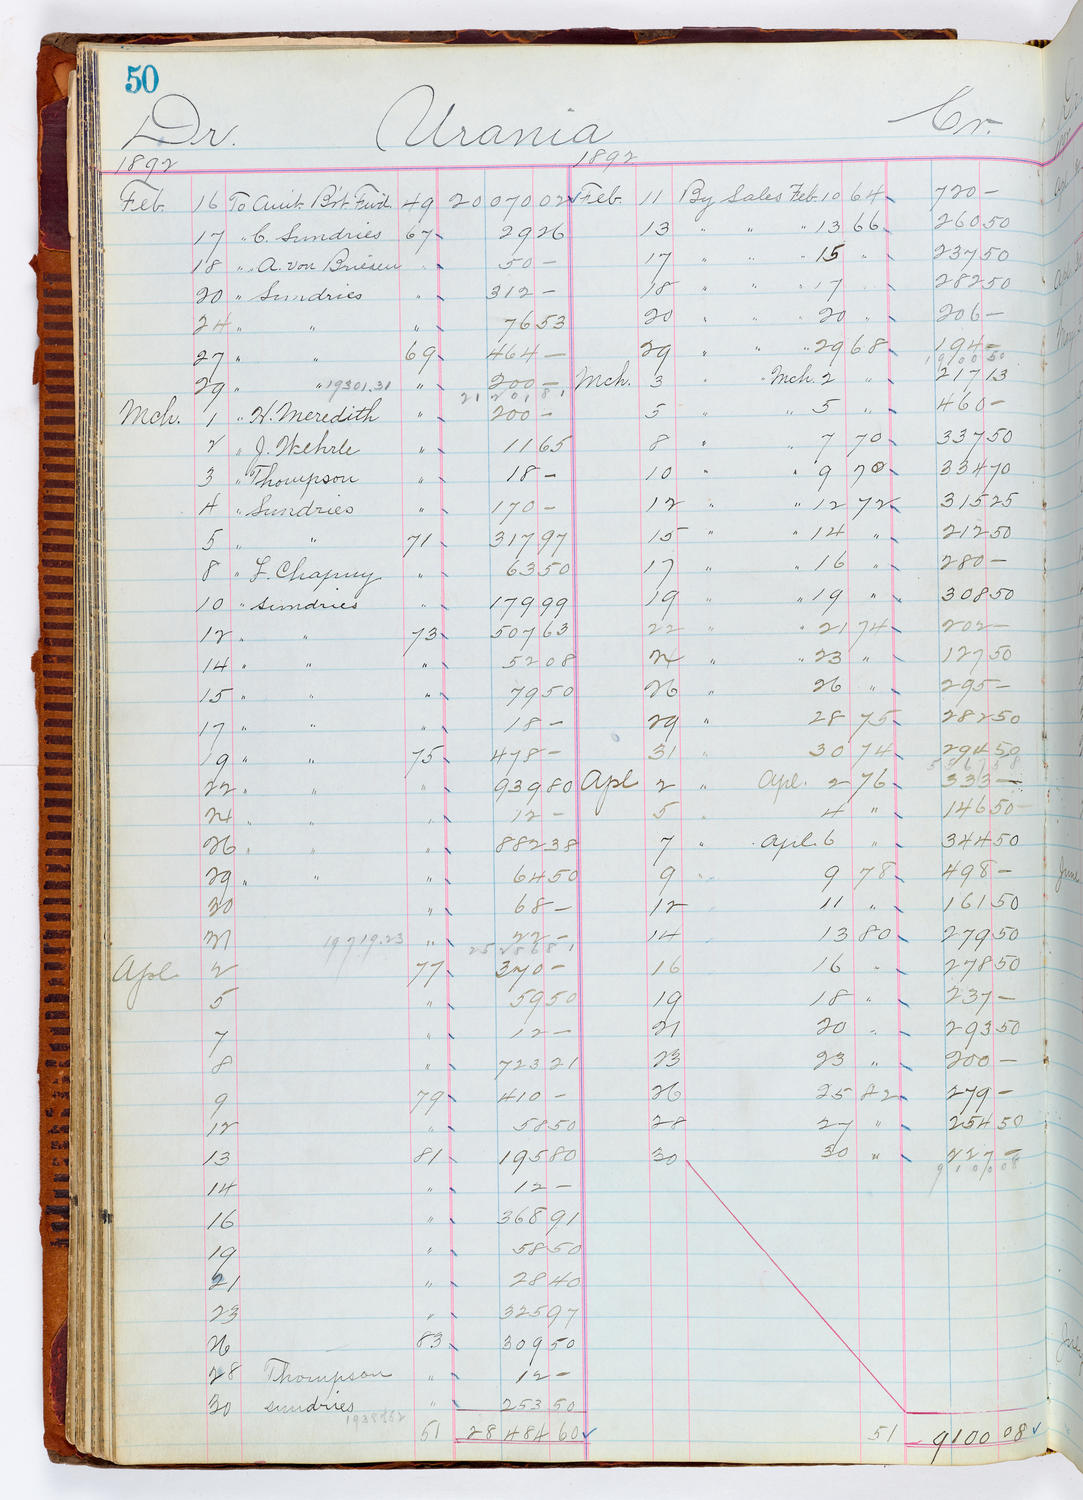 50
Dr. Urania Cr.
1892 1892
Feb. 16 To Amt. Br't Fwd. 49 20 070 02 Feb. 11 By Sales Feb. 10 64 720 —
17 " C. Sundries 67 29 26 13 " " " 13 66 260 50
18 " A. von Briesen " 50 — 17 " " " 15 " 237 50
20 " Sundries " 312 — 18 " " " 17 282 50
24 " " " 76 53 20 " " " 20 " 206 —
27 " " 69 464 — 29 " " " 29 68 194 —
1900 50
29 " " 19301.31 " 200 — Mch. 3 " " Mch. 2 " 217 13
21 201 81
Mch. 1 " H. Meredith " 200 — 5 " " 5 " 460 —
2 " J. Wehrle " 11 65 8 " " 7 70 337 50
3 " Thompson " 18 — 10 " " 9 70 334 70
4 " Sundries " 170 — 12 " " 12 72 315 25
5 " " 71 317 97 15 " " 14 " 212 50
8 " F. Chapuy " 63 50 17 " " 16 " 280 —
10 " Sundries " 179 99 19 " " 19 " 308 50
12 " " 73 507 63 22 " " 21 74 202 —
14 " " " 52 08 24 " " 23 " 127 50
15 " " " 79 50 26 " 26 " 295 —
17 " " " 18 — 29 " 28 75 282 50
19 " " 75 478 — 31 " 30 74 294 50
22 " " " 939 80 Apl 2 " Apl. 2 76 333 —
24 " " " 12 — 5 " 4 " 146 50
26 " " " 882 38 7 " Apl. 6 " 344 50
29 " " " 64 50 9 " 9 78 498 —
30 " 68 — 12 11 " 161 50
31 19719.23 " 22 — 14 13 80 279 50
Apl 2 77 370 — 16 16 " 278 50
5 " 59 50 19 18 " 237 —
7 " 12 — 21 20 " 293 50
8 " 723 21 23 23 " 200 —
9 79 410 — 26 25 82 279 —
12 " 58 50 28 27 " 254 50
13 81 195 80 30 30 " 227 —
9100 08
14 " 12 —
16 " 368 91
19 " 58 50
21 " 28 40
23 " 325 97
26 83 309 50
28 Thompson " 12 —
30 Sundries " 253 50
51 28 484 60 51 9100 08